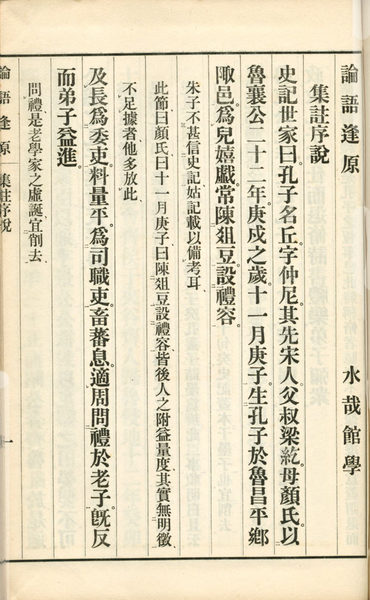 論語逢原　水哉館學
集註序說
史記世家曰。孔子名丘字仲尼。其先宋人。父叔梁紇。母顏氏。以
魯襄公二十二年庚戌之歲十一月庚子。生孔子於魯昌平鄉
陬邑。爲兒嬉戲常陳俎豆設禮容。
朱子不甚信史記姑記載以備考耳
此節曰顏氏曰十一月庚子曰陳俎豆設禮容皆後人之附益量度其實無明徵
不足據者他多放此
及長爲委吏。料量平。爲司職吏。畜蕃息。適周問禮於老子。旣反
而弟子益進。
問禮是老學家之虛誕宜削去
論語逢原　集註序說　一